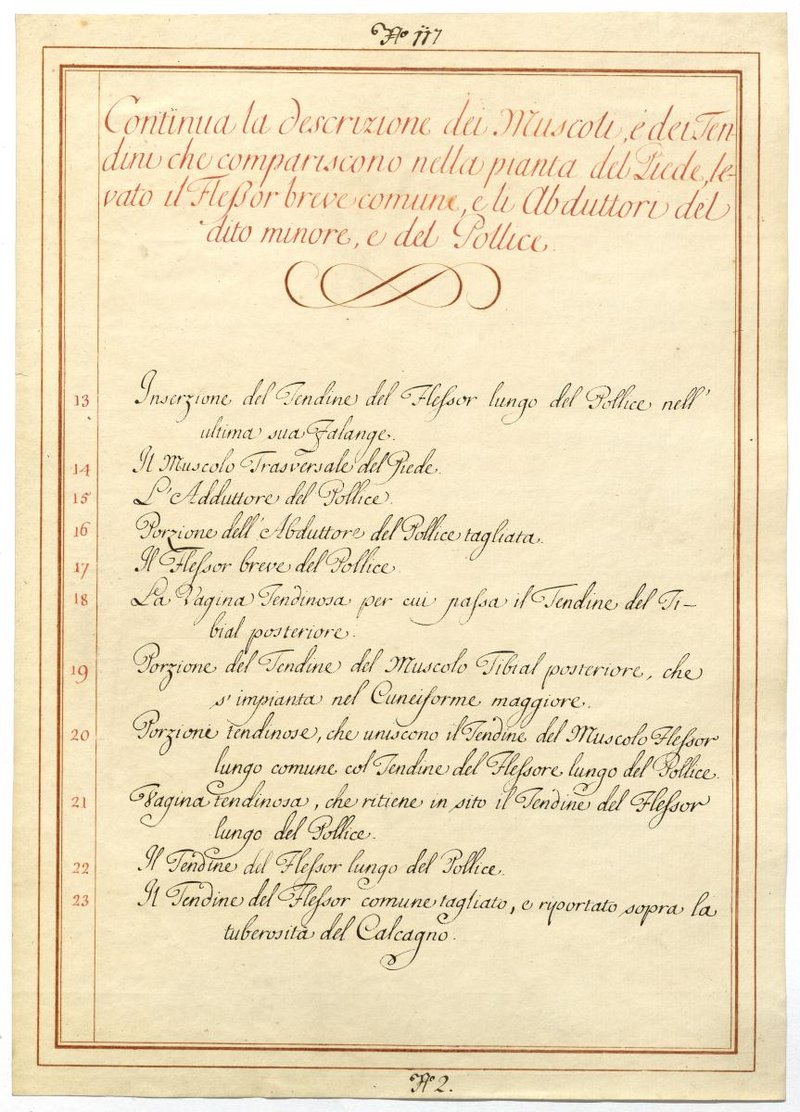 No 117
Continua la descrizione dei Muscoli, e dei Ten-
dini che compariscono nella pianta del Piede, le-
vato il Fleßor breve comune, e li Abduttori del
dito minore, e del Pollice.
13 Inserzione del Tendine del Flessor lungo del Pollice nell'
ultima sua Falange.
14 Il Muscolo Trasversale del Piede.
15 L'Adduttore del Pollice.
16 Porzione dell'Abduttore del Pollice tagliata.
17 Il Flessor breve del Pollice.
18 La Vagina Tendinosa per cui passa il Tendine del Ti-
bial posteriore.
19 Porzione del Tendine del Muscolo Tibial posteriore, che
s'impianta nel Cuneiforme maggiore.
20 Porzioni tendinose, che uniscono il Tendine del Muscolo Flessor
lungo comune col Tendine del Flessore lungo del Pollice.
21 Vagina tendinosa, che ritiene in sito il Tendine del Flessor
lungo del Pollice.
22 Il Tendine del Flessor lungo del Pollice.
23 Il Tendine del Flessor comune tagliato, e riportato sopra la
tuberosità del Calcagno.
No 2.